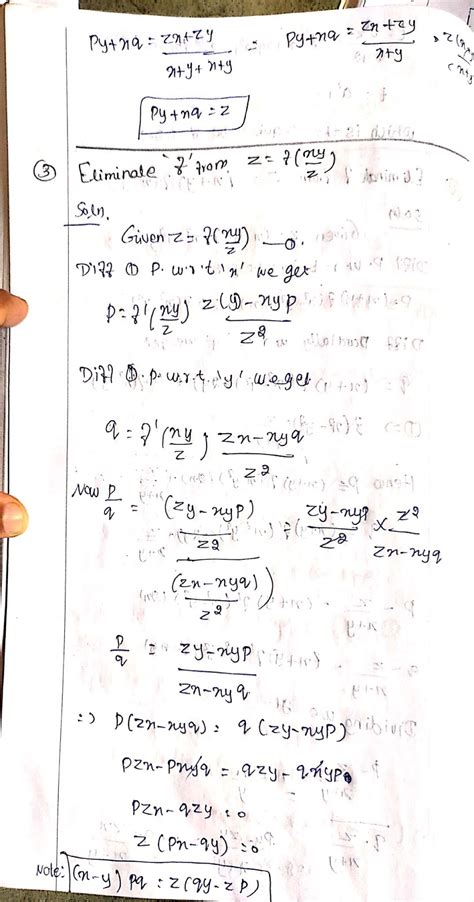 Py+xq = zx+zy / x+y+x+y = Py+xq = zx+zy / x+y
Py+xq = z
③ Eliminate 'f' from z = f(xy/z)
Soln.
Given z = f(xy/z) —①.
Diff ① P. w.r.t 'x' we get
P = f'(xy/z) z(y)-xyp / z²
Diff ① .p.w.r.t. 'y' we get
q = f'(xy/z) zx-xyq / z²
Now p/q = (zy-xyp) / z² / (zx-xyq) / z² zy-xyp / z² × z² / zx-xyq
p/q = zy-xyp / zx-xyq
=> P(zx-xyq) = q(zy-xyp)
Pzx-Pxyq = qzy-qxyp
Pzx-qzy = 0
z(Px-qy) = 0
Note: (x-y) pq = z(qy-zp)